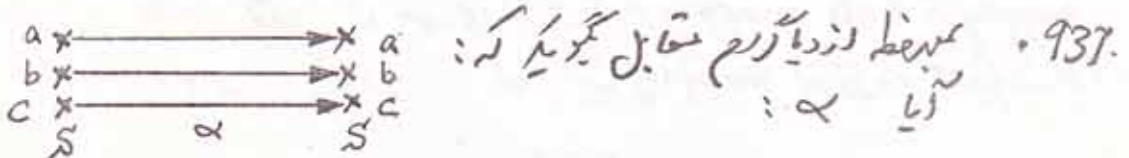 937. بملاحظه از دیاگرام مقابل بگویید که:
آیا α :
a a
b b
c c
S α S